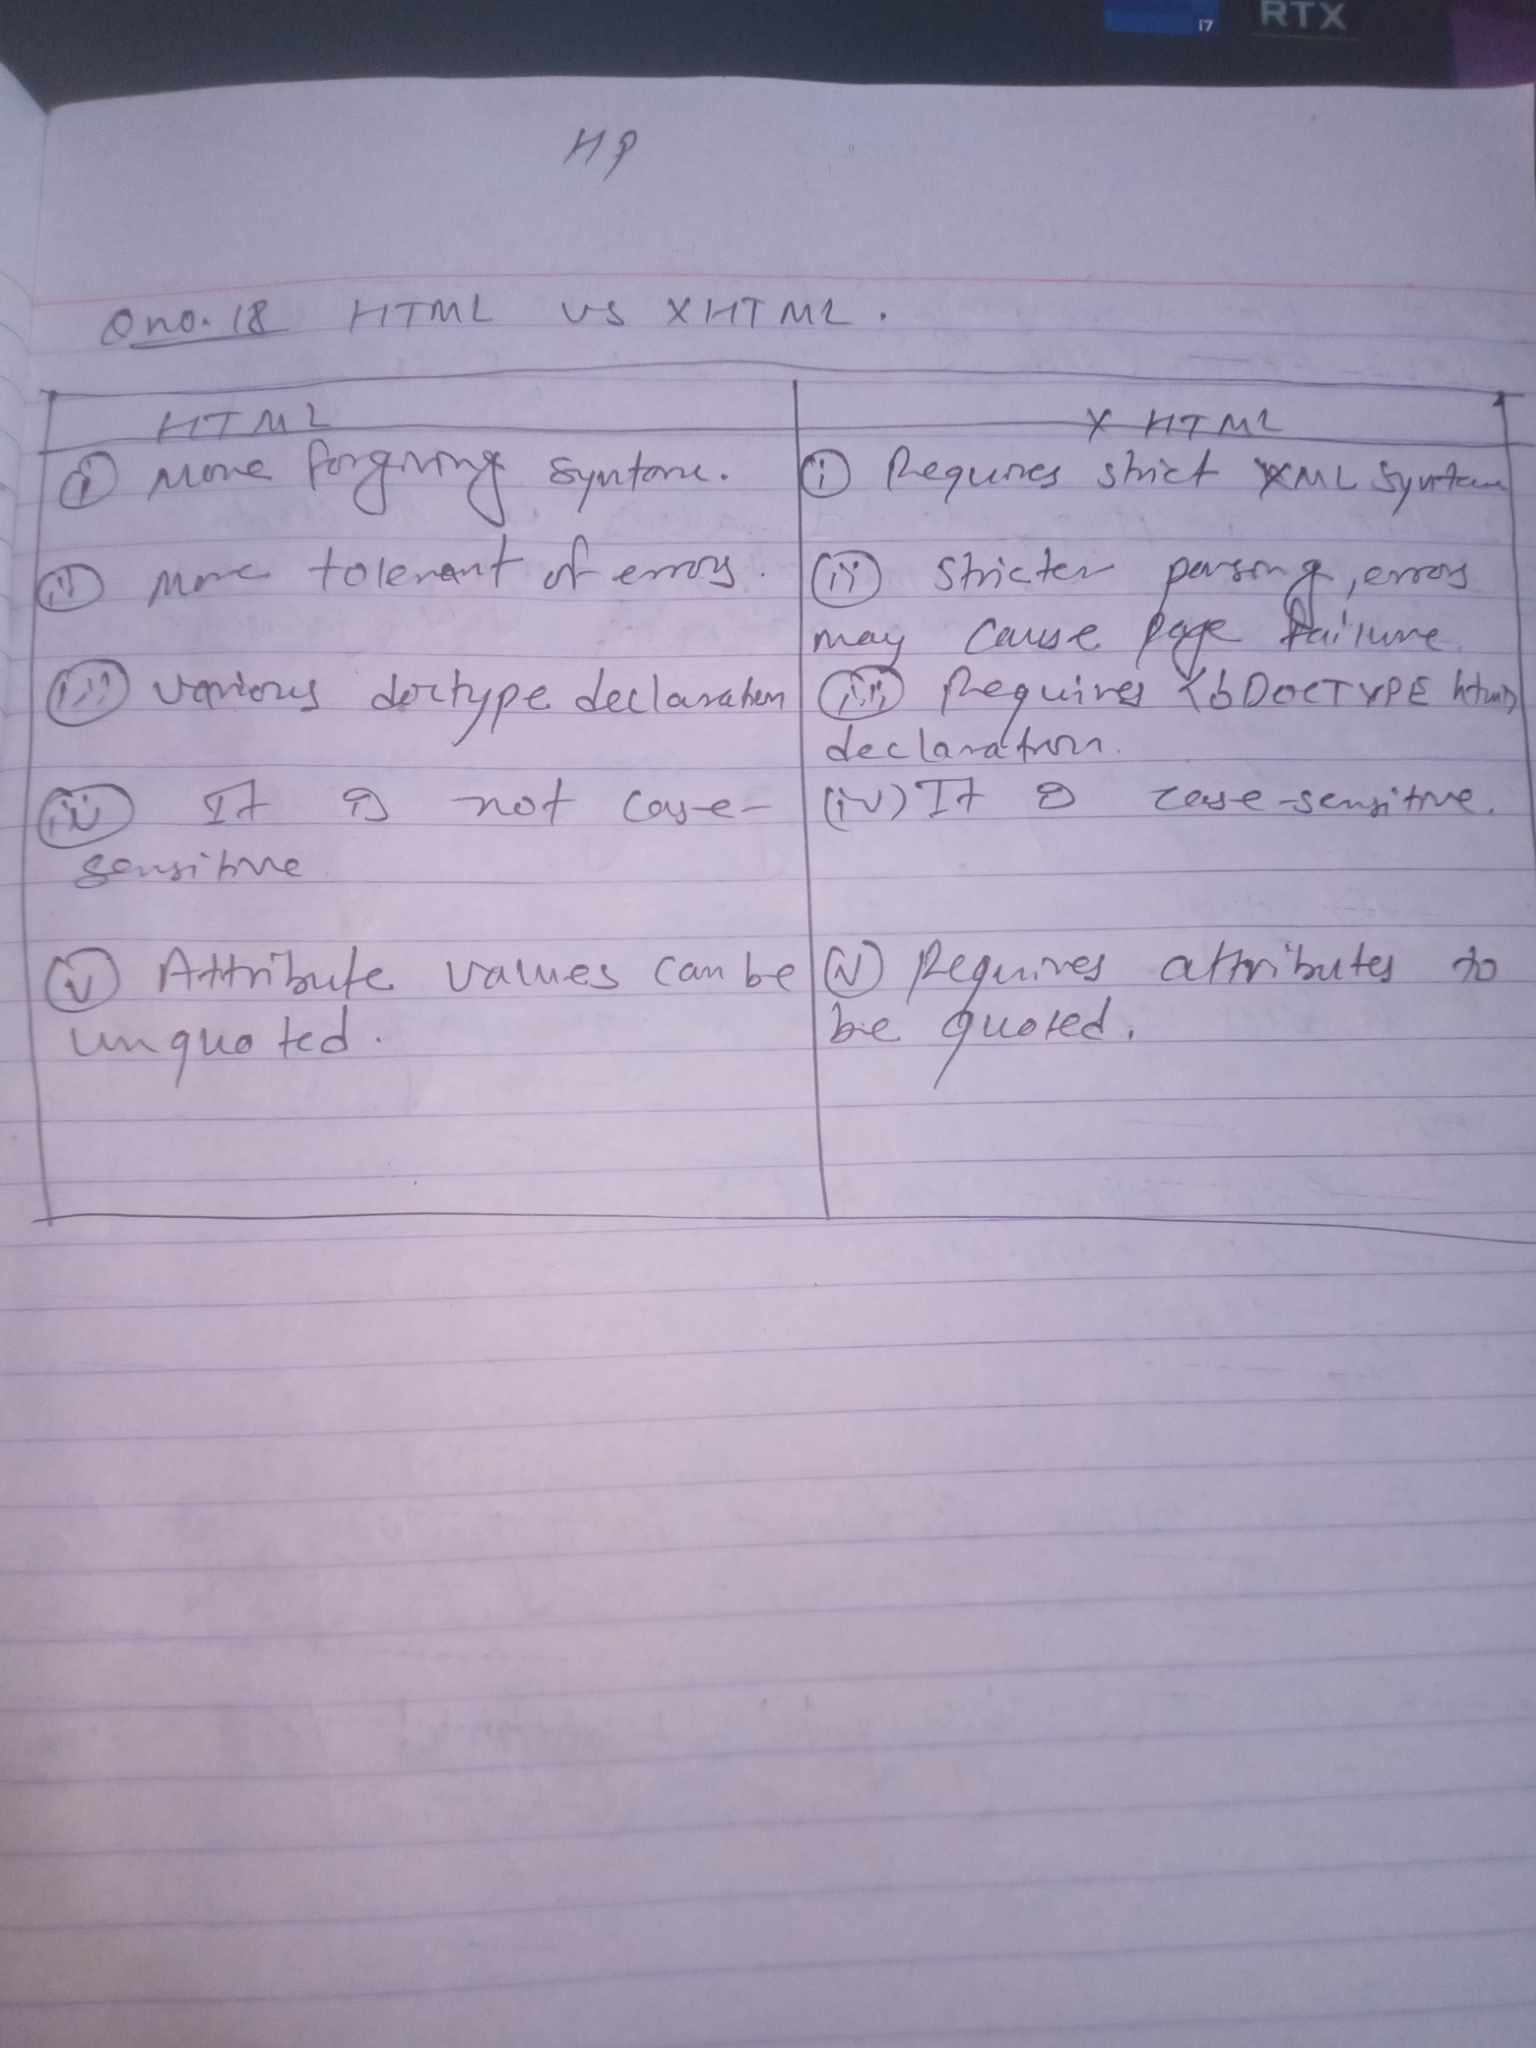 i7 RTX
HP
Q no. 18 HTML vs XHTML.
HTML
X HTML
(i) More forgiving syntax.
(i) Requires strict XML Syntax
(ii) More tolerant of errors.
(ii) Stricter parsing, errors
may cause page failure
(iii) various doctype declaration
(iii) Requires <!DOCTYPE html>
declaration.
(iv) It is not case-
sensitive
(iv) It is case-sensitive.
(v) Attribute values can be
unquoted.
(v) Requires attributes to
be quoted.